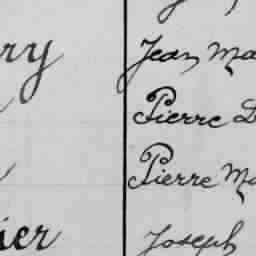 ry Jean Ma
Pierre D
Pierre Ma
ier Joseph